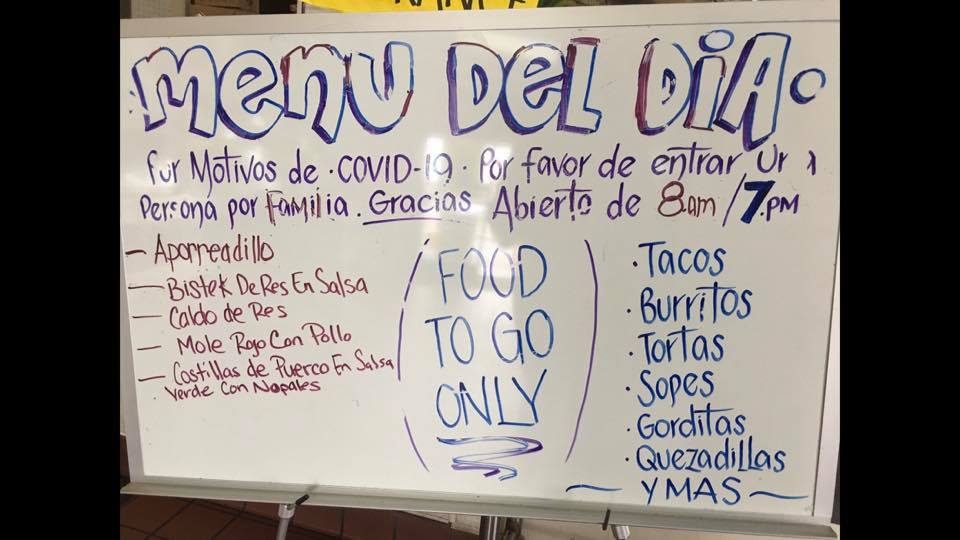 MENU DEL DIA.
Motivos de . COVID-19 . Por favor de entrar
Persona por Familia. Gracias Abierto de 8.am / 7.PM
- Aporreadillo
- Bistek De Res En Salsa
- Caldo de Res
- Mole Rojo Con Pollo
- Costillas de Puerco En Salsa
Verde Con Nopales
(FOOD
TO GO
ONLY)
. Tacos
. Burritos
. Tortas
. Sopes
. Gorditas
. Quezadillas
~ Y MAS ~